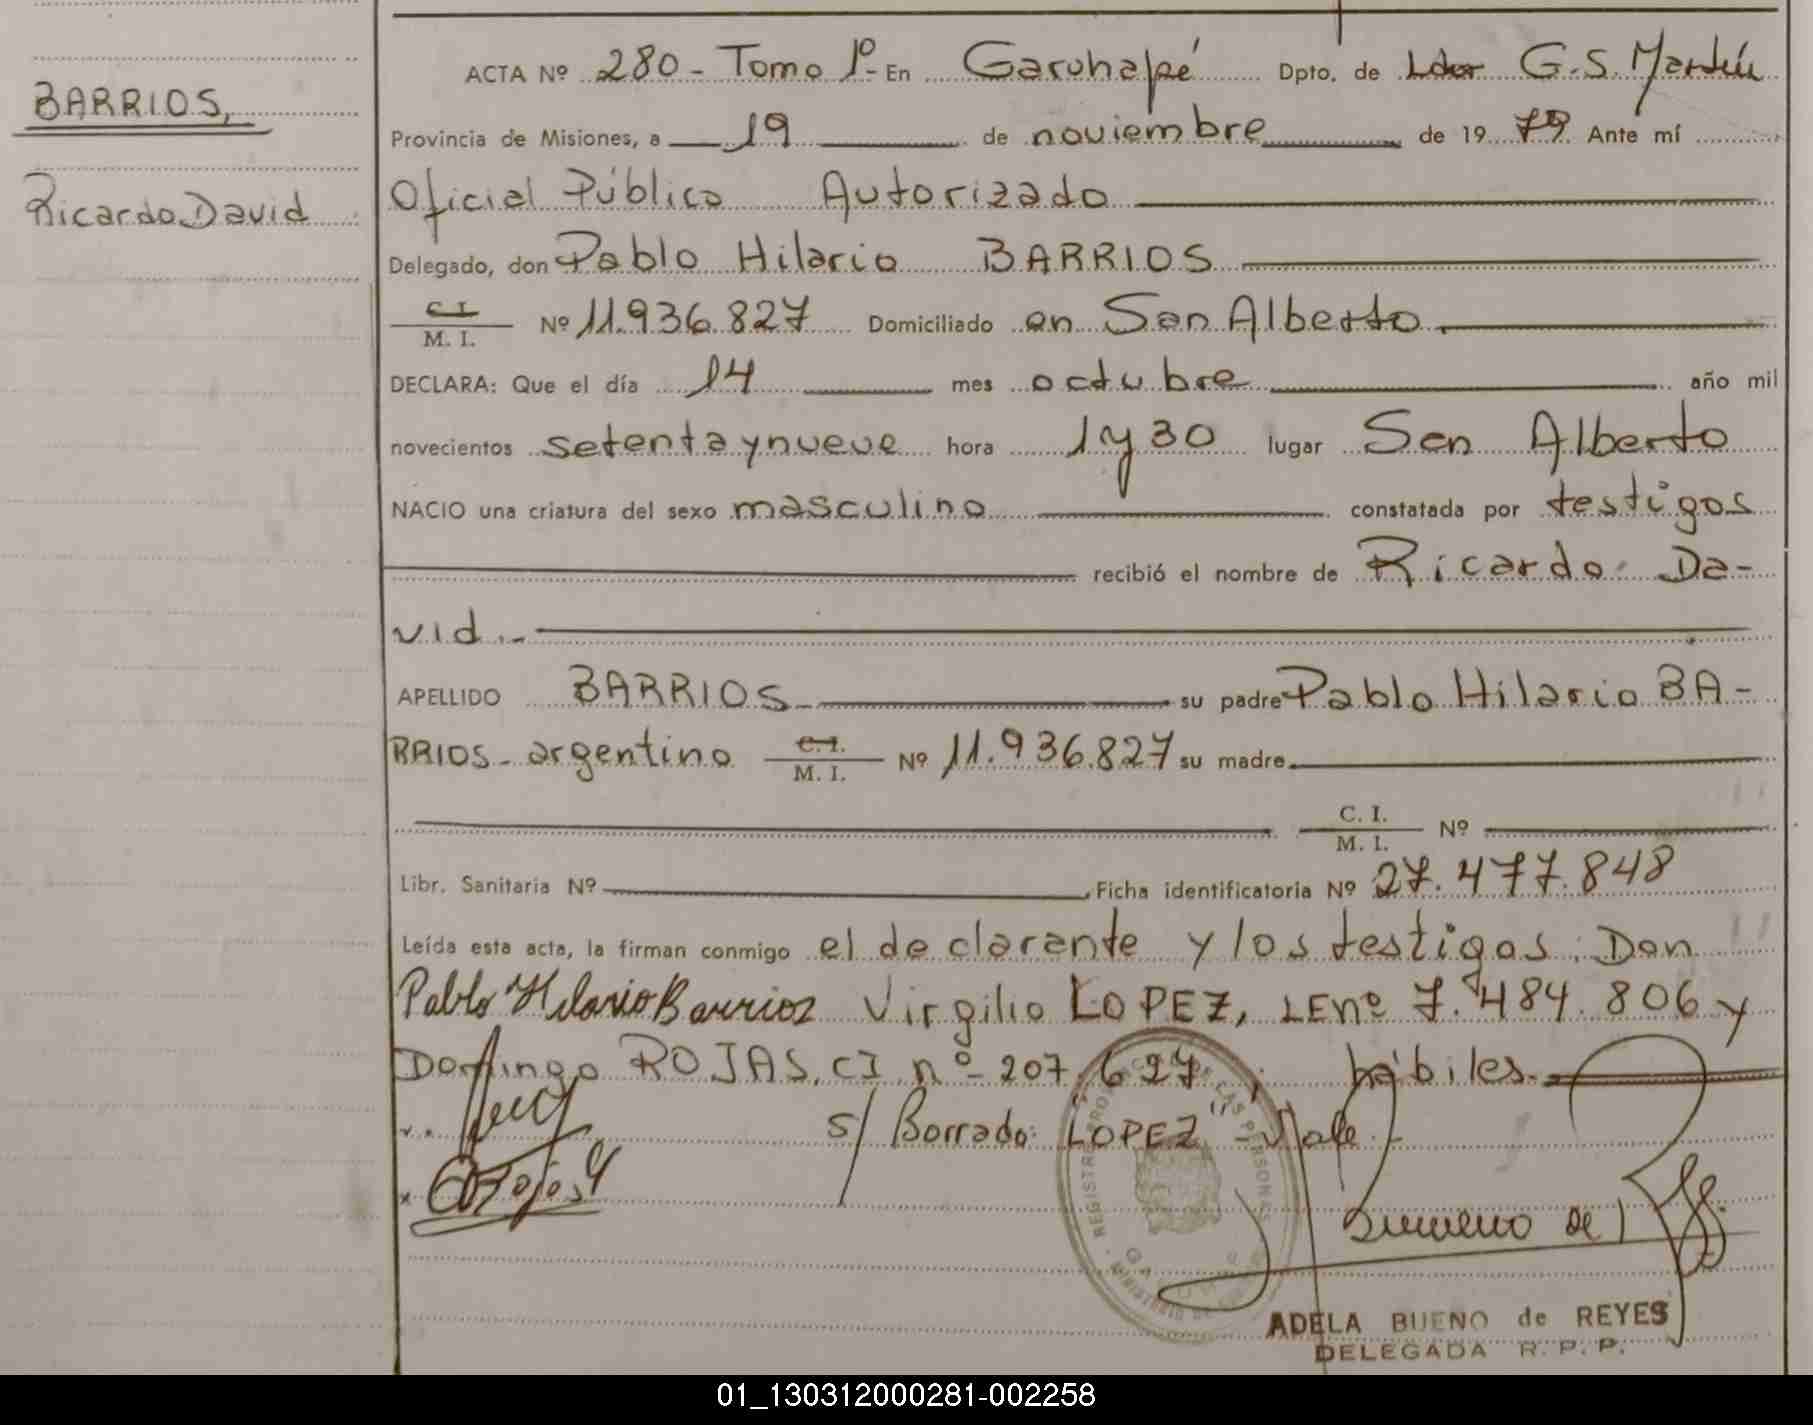 BARRIOS,
Ricardo David
ACTA Nº 280 - Tomo 1º - En Garuhapé Dpto. de Ldor G. S. Martín
Provincia de Misiones, a 19 de noviembre de 1979 Ante mí
Oficial Público Autorizado
Delegado, don Pablo Hilario BARRIOS
C. I. / M. I. Nº 11.936.827 Domiciliado en San Alberto.
DECLARA: Que el día 14 mes octubre año mil
novecientos setenta y nueve hora 1 y 30 lugar San Alberto
NACIO una criatura del sexo masculino constatada por testigos
recibió el nombre de Ricardo Da-
vid.-
APELLIDO BARRIOS su padre Pablo Hilario BA-
RRIOS - argentino C. I. / M. I. Nº 11.936.827 su madre
C. I. / M. I. Nº
Libr. Sanitaria Nº Ficha identificatoria Nº 27.477.848
Leída esta acta, la firman conmigo el declarante y los testigos: Don
Pablo Hilario Barrios Virgilio LOPEZ, LE nº 7.484.806 y
Domingo ROJAS, CI nº 207.627; hábiles.
s/ Borrado: LOPEZ" - Vale.-
REGISTRO PROVINCIAL DE LAS PERSONAS
ADELA BUENO de REYES
DELEGADA R. P. P.
01_130312000281-002258